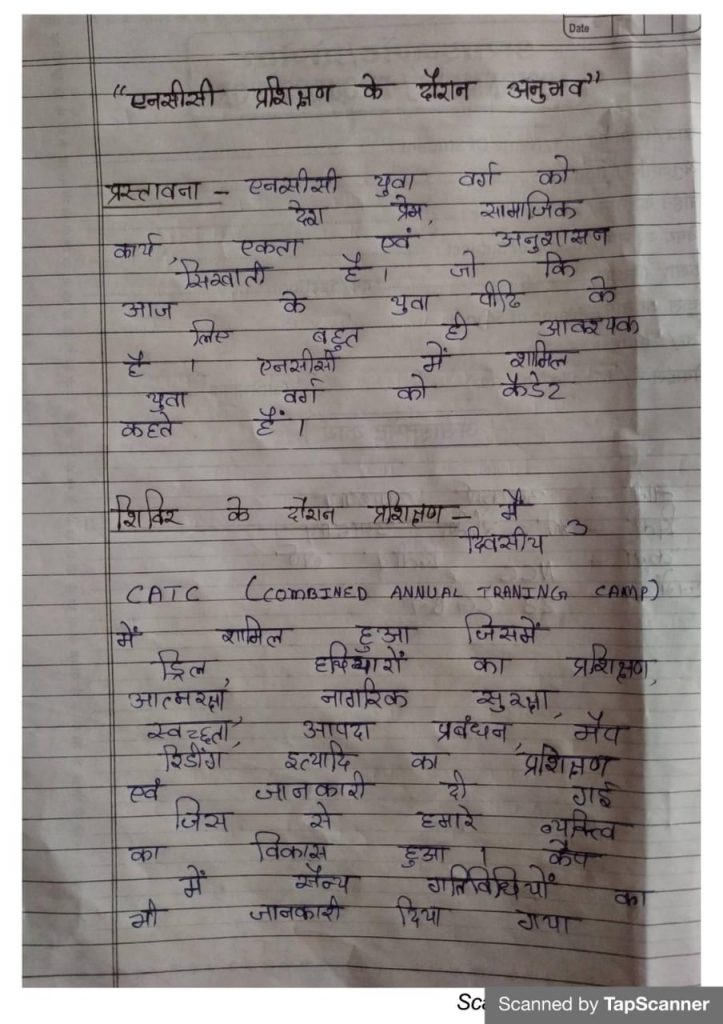 Date
"एनसीसी प्रशिक्षण के दौरान अनुभव"
प्रस्तावना - एनसीसी युवा वर्ग को
देश प्रेम, सामाजिक
कार्य, एकता एवं अनुशासन
सिखाती है। जो कि
आज के युवा पीढि के
लिए बहुत ही आवश्यक
है । एनसीसी में शामिल
युवा वर्ग को कैडेट
कहते हैं ।
शिविर के दौरान प्रशिक्षण - मैं
दिवसीय 3
CATC (COMBINED ANNUAL TRANING CAMP)
में शामिल हुआ जिसमें
ड्रिल, हथियारों का प्रशिक्षण,
आत्मरक्षा नागरिक सुरक्षा,
स्वच्छता, आपदा प्रबंधन, मैप
रिडींग इत्यादि का प्रशिक्षण
एवं जानकारी दी गई
जिस से हमारे व्यक्तित्व
का विकास हुआ । कैंप
में सैन्य गतिविधियों का
भी जानकारी दिया गया
Scanned by TapScanner